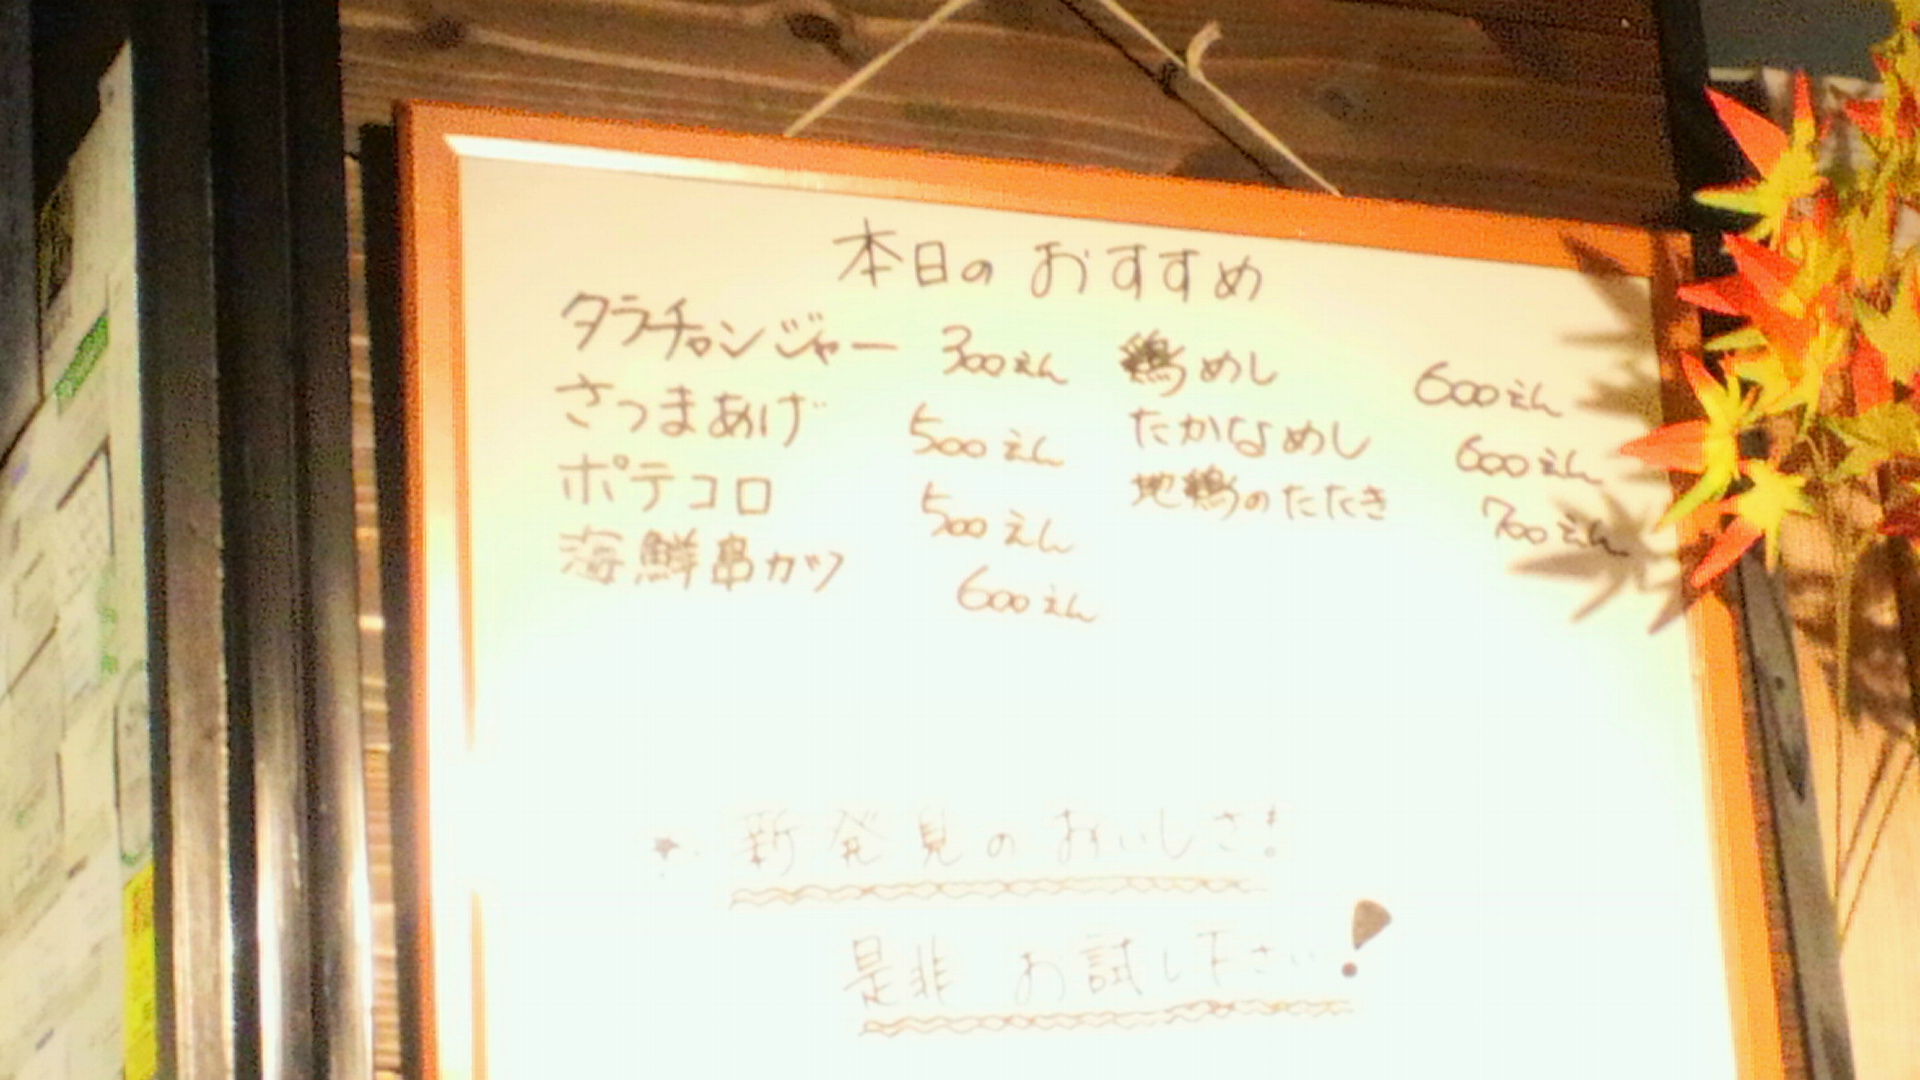 本日のおすすめ
タラチャンジャー 300えん
さつまあげ 500えん
ポテコロ 500えん
海鮮串カツ 600えん
鶏めし 600えん
たかなめし 600えん
地鶏のたたき 700えん
★新発見のおいしさ!
是非お試し下さい!